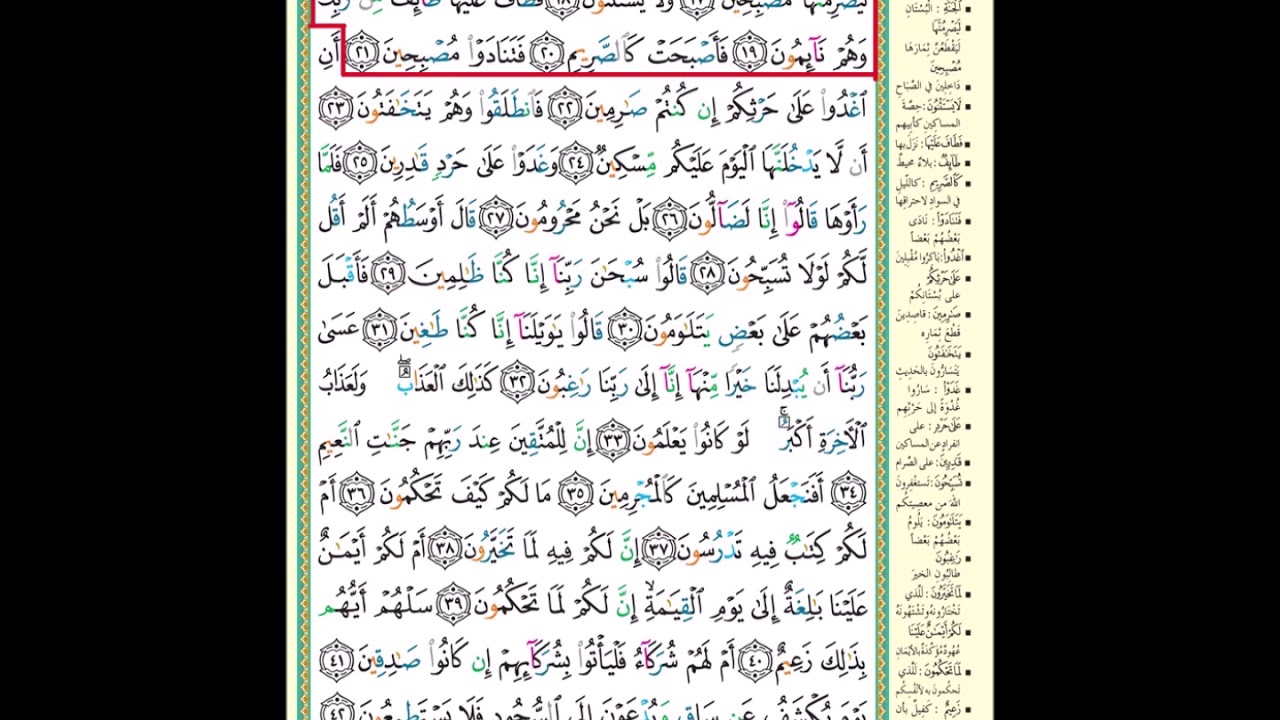 لَيَصْرِمُنَّهَا مُصْبِحِينَ ١٧ وَلَا يَسْتَثْنُونَ ١٨ فَطَافَ عَلَيْهَا طَآئِفٌ مِّن رَّبِّكَ
وَهُمْ نَآئِمُونَ ١٩ فَأَصْبَحَتْ كَٱلصَّرِيمِ ٢٠ فَتَنَادَوْا۟ مُصْبِحِينَ ٢١ أَنِ
ٱغْدُوا۟ عَلَىٰ حَرْثِكُمْ إِن كُنتُمْ صَـٰرِمِينَ ٢٢ فَٱنطَلَقُوا۟ وَهُمْ يَتَخَـٰفَتُونَ ٢٣
أَن لَّا يَدْخُلَنَّهَا ٱلْيَوْمَ عَلَيْكُم مِّسْكِينٌ ٢٤ وَغَدَوْا۟ عَلَىٰ حَرْدٍ قَـٰدِرِينَ ٢٥ فَلَمَّا
رَأَوْهَا قَالُوٓا۟ إِنَّا لَضَآلُّونَ ٢٦ بَلْ نَحْنُ مَحْرُومُونَ ٢٧ قَالَ أَوْسَطُهُمْ أَلَمْ أَقُل
لَّكُمْ لَوْلَا تُسَبِّحُونَ ٢٨ قَالُوا۟ سُبْحَـٰنَ رَبِّنَآ إِنَّا كُنَّا ظَـٰلِمِينَ ٢٩ فَأَقْبَلَ
بَعْضُهُمْ عَلَىٰ بَعْضٍ يَتَلَـٰوَمُونَ ٣٠ قَالُوا۟ يَـٰوَيْلَنَآ إِنَّا كُنَّا طَـٰغِينَ ٣١ عَسَىٰ
رَبُّنَآ أَن يُبْدِلَنَا خَيْرًا مِّنْهَآ إِنَّآ إِلَىٰ رَبِّنَا رَٰغِبُونَ ٣٢ كَذَٰلِكَ ٱلْعَذَابُ وَلَعَذَابُ
ٱلْـَٔاخِرَةِ أَكْبَرُ لَوْ كَانُوا۟ يَعْلَمُونَ ٣٣ إِنَّ لِلْمُتَّقِينَ عِندَ رَبِّهِمْ جَنَّـٰتِ ٱلنَّعِيمِ
٣٤ أَفَنَجْعَلُ ٱلْمُسْلِمِينَ كَٱلْمُجْرِمِينَ ٣٥ مَا لَكُمْ كَيْفَ تَحْكُمُونَ ٣٦ أَمْ
لَكُمْ كِتَـٰبٌ فِيهِ تَدْرُسُونَ ٣٧ إِنَّ لَكُمْ فِيهِ لَمَا تَخَيَّرُونَ ٣٨ أَمْ لَكُمْ أَيْمَـٰنٌ
عَلَيْنَا بَـٰلِغَةٌ إِلَىٰ يَوْمِ ٱلْقِيَـٰمَةِ إِنَّ لَكُمْ لَمَا تَحْكُمُونَ ٣٩ سَلْهُمْ أَيُّهُم
بِذَٰلِكَ زَعِيمٌ ٤٠ أَمْ لَهُمْ شُرَكَآءُ فَلْيَأْتُوا۟ بِشُرَكَآئِهِمْ إِن كَانُوا۟ صَـٰدِقِينَ ٤١
يَوْمَ يُكْشَفُ عَن سَاقٍ وَيُدْعَوْنَ إِلَى ٱلسُّجُودِ فَلَا يَسْتَطِيعُونَ ٤٢
الجَنَّةِ : البُسْتَانِ
لَيَصْرِمُنَّهَا
لَيَقْطَعُنَّ ثِمَارَهَا
مُصْبِحِينَ
دَاخِلِينَ فِي الصَّبَاحِ
لَا يَسْتَثْنُونَ : حِصَّةَ
المساكين كأبيهم
فَطَافَ عَلَيْهَا : نَزَلَ بها
طَآئِفٌ : بلاءٌ محيطٌ
كَٱلصَّرِيمِ : كالليل
في السواد لاحتراقها
فَتَنَادَوْا : نَادَى
بَعْضُهُمْ بَعْضاً
ٱغْدُوا : بَاكِرُوا مُقْبِلِينَ
عَلَىٰ حَرْثِكُمْ
على بُسْتَانِكُمْ
صَـٰرِمِينَ : قاصِدِينَ
قَطْعَ ثِمَارِهِ
يَتَخَـٰفَتُونَ
يَتَسَارُّونَ بالحَدِيثِ
غَدَوْا : سَارُوا
غُدْوَةً إلى حَرْثِهِم
عَلَىٰ حَرْدٍ : على
انفرادٍ عن المساكين
قَـٰدِرِينَ : على الصِّرام
تُسَبِّحُونَ : تستغفرون
الله من معصيتكم
يَتَلَـٰوَمُونَ : يَلُومُ
بَعْضُهُمْ بعضاً
رَٰغِبُونَ
طالِبُون الخيرَ
لَمَا تَخَيَّرُونَ : للّذي
تَخْتَارُونَهُ وتَشْتَهُونَهُ
لَكُمْ أَيْمَـٰنٌ عَلَيْنَا
عُهُودٌ مُؤكَّدَةٌ بالأيْمَانِ
لَمَا تَحْكُمُونَ : للّذي
تحكمون به لأنفُسِكُم
زَعِيمٌ : كفيلٌ بأن